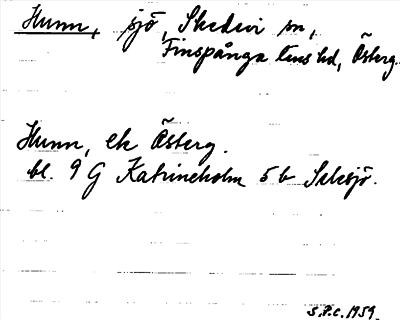 Hunn, sjö, Skedevi sn,
Finspånga läns hd, Österg.
Hunn, ek Österg.
bl. 9 G Katrineholm 5 b
S.P.C. 1959.